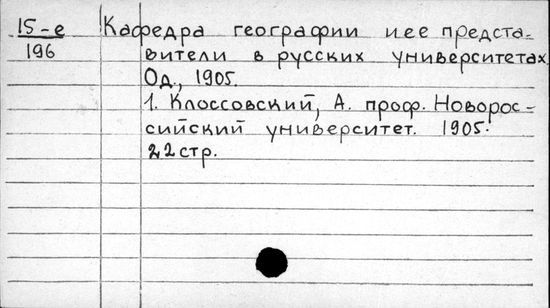 15-е Кафедра географии и ее предста-
196 вители в русских университетах
Од., 1905.
1. Клоссовский, А. проф. Новорос-
сийский университет. 1905.
22 стр.